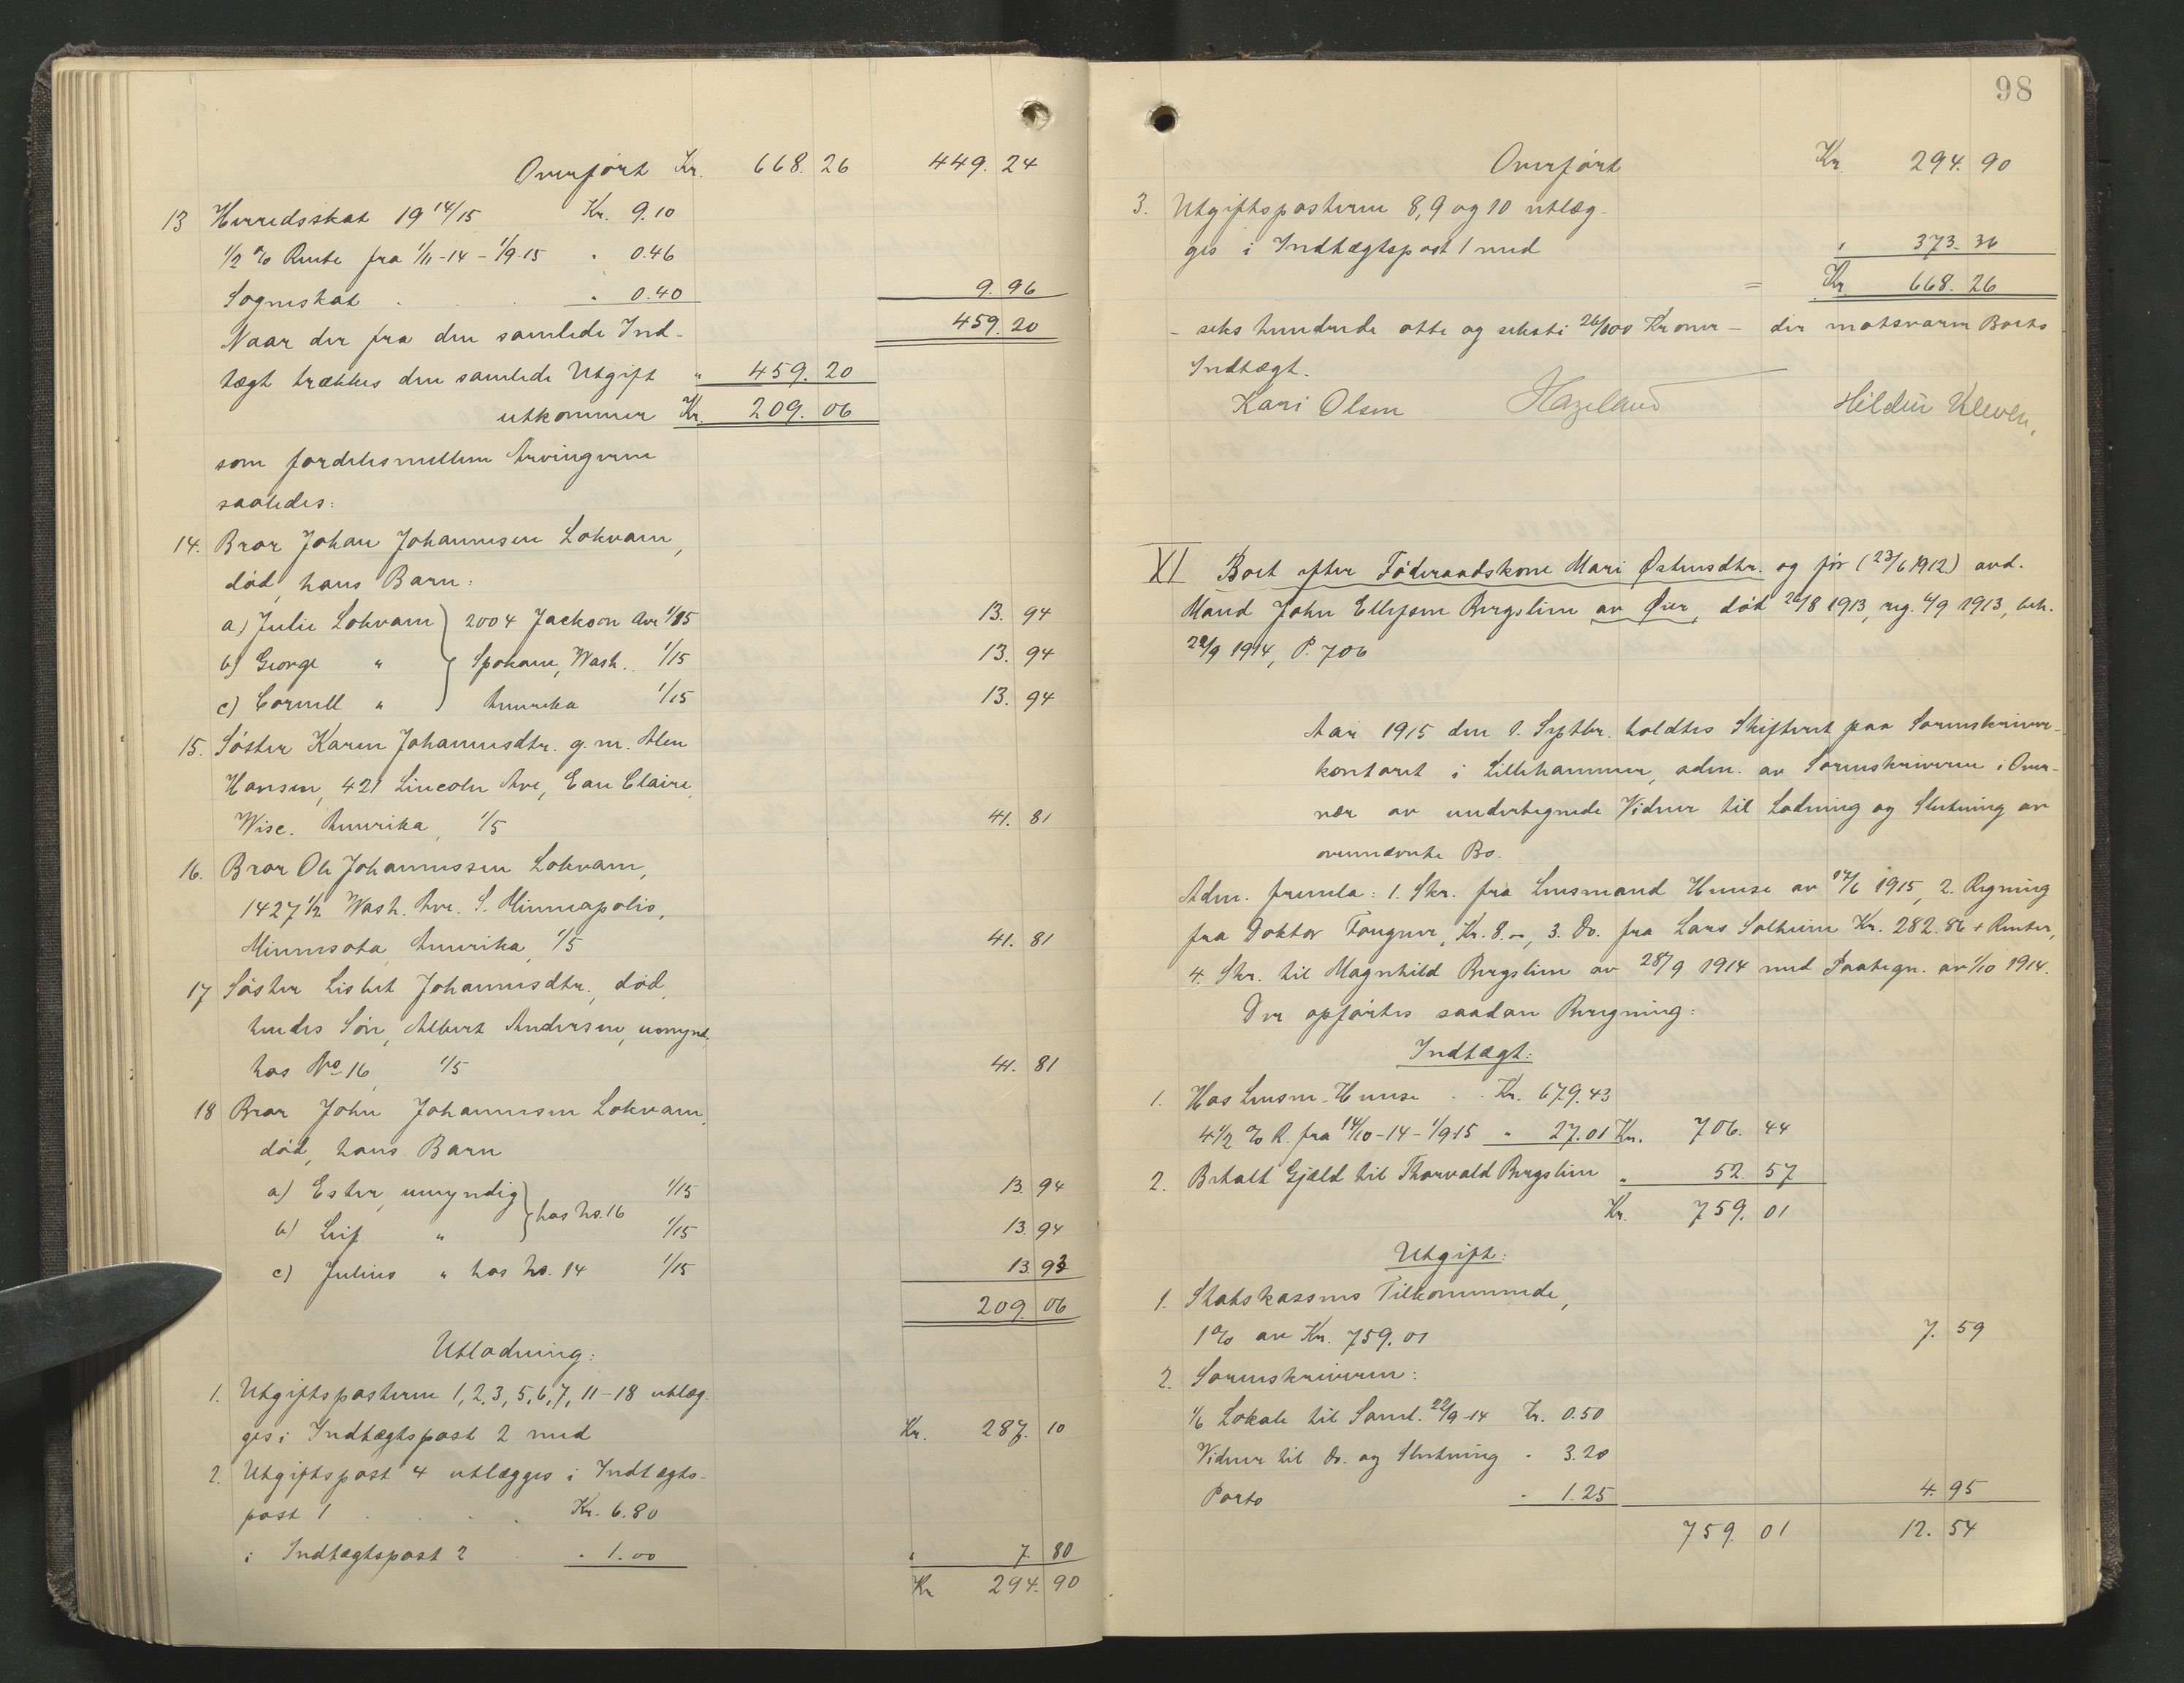 Overført Kr. 668.26 449.24
13 Herredsskat 19 14/15 Kr. 9.10
1/2 % Rente fra 1/11-14 - 1/9-15 " 0.46
Sogneskat " 0.40 9.96
Naar der fra den samlede Ind- 459.20
tægt trækkes den samlede Utgift " 459.20
utkommer Kr. 209.06
som fordeles mellem Arvingerne
saaledes:
14. Bror Johan Johannesen Lokvam,
død, hans Barn:
a) Julie Lokvam 2004 Jackson Ave 1/15 13.94
b) George " Spokane, Wash. 1/15 13.94
c) Cornell " Amerika 1/15 13.94
15. Søster Karen Johannesdtr. g. m. Alen
Hansen, 421 Lincoln Ave, Eau Claire,
Wisc. Amerika, 1/5 41.81
16. Bror Ole Johannessen Lokvam,
1427 1/2 Wash. Ave. S. Minneapolis,
Minnesota, Amerika, 1/5 41.81
17 Søster Lisbet Johannesdtr., død,
hendes Søn, Albert Andersen, umynd.
hos No 16, 1/5 41.81
18 Bror John Johannesen Lokvam,
død, hans Barn
a) Ester, umyndig 1/15 13.94
hos no. 16
b) Leif " 1/15 13.94
c) Julius " hos no. 14 1/15 13.93
209.06
Utlodning:
1. Utgiftsposterne 1, 2, 3, 5, 6, 7, 11-18 utlæg-
ges i Indtægtspost 2 med Kr. 287.10
2. Utgiftspost 4 utlægges i Indtægts-
post 1 Kr. 6.80
i Indtægtspost 2 " 1.00 " 7.80
Kr 294.90
98
Overført Kr. 294.90
3. Utgiftsposterne 8, 9 og 10 utlæg-
ges i Indtægtspost 1 med " 373.36
= Kr. 668.26
- seks hundrede otte og seksti 26/100 Kroner - der motsvarer Boets
Indtægt.
Kari Olsen Hazeland Hildur Kleven.
XI Boet efter Føderaadskone Mari Østensdtr. og før (23/6 1912) avd.
Mand John Ellefsen Bergslien av Øier, død 26/8 1913, reg. 4/9 1913, beh.
22/9 1914, P. 706
Aar 1915 den 1. Septbr. holdtes Skifteret paa Sorenskriver-
kontoret i Lillehammer, adm. av Sorenskriveren i Over-
vær av undertegnede Vidner til Lodning og Slutning av
ovennævnte Bo.
Adm. fremla: 1. Skr. fra Lensmand Hunse av 17/6 1915, 2. Regning
fra Doktor Fougner, Kr. 8.-, 3. Do. fra Lars Solheim Kr. 282.86 + Renter,
4. Skr. til Magnhild Bergslien av 28/9 1914 med Paategn. av 1/10 1914.
Der opførtes saadan Beregning:
Indtægt:
1. Hos Lensm. Hunse Kr. 679.43
4 1/2 % R. fra 14/10-14 - 1/9 15 " 27.01 Kr. 706.44
2. Betalt Gjæld til Thorvald Bergslien " 52.57
Kr. 759.01
Utgift:
1. Statskassens Tilkommende,
1 % av Kr. 759.01 7.59
2. Sorenskriveren:
1/6 Lokale til Saml. 22/9-14 Kr. 0.50
Vidner til do. og Slutning " 3.20
Porto " 1.25 4.95
759.01 12.54